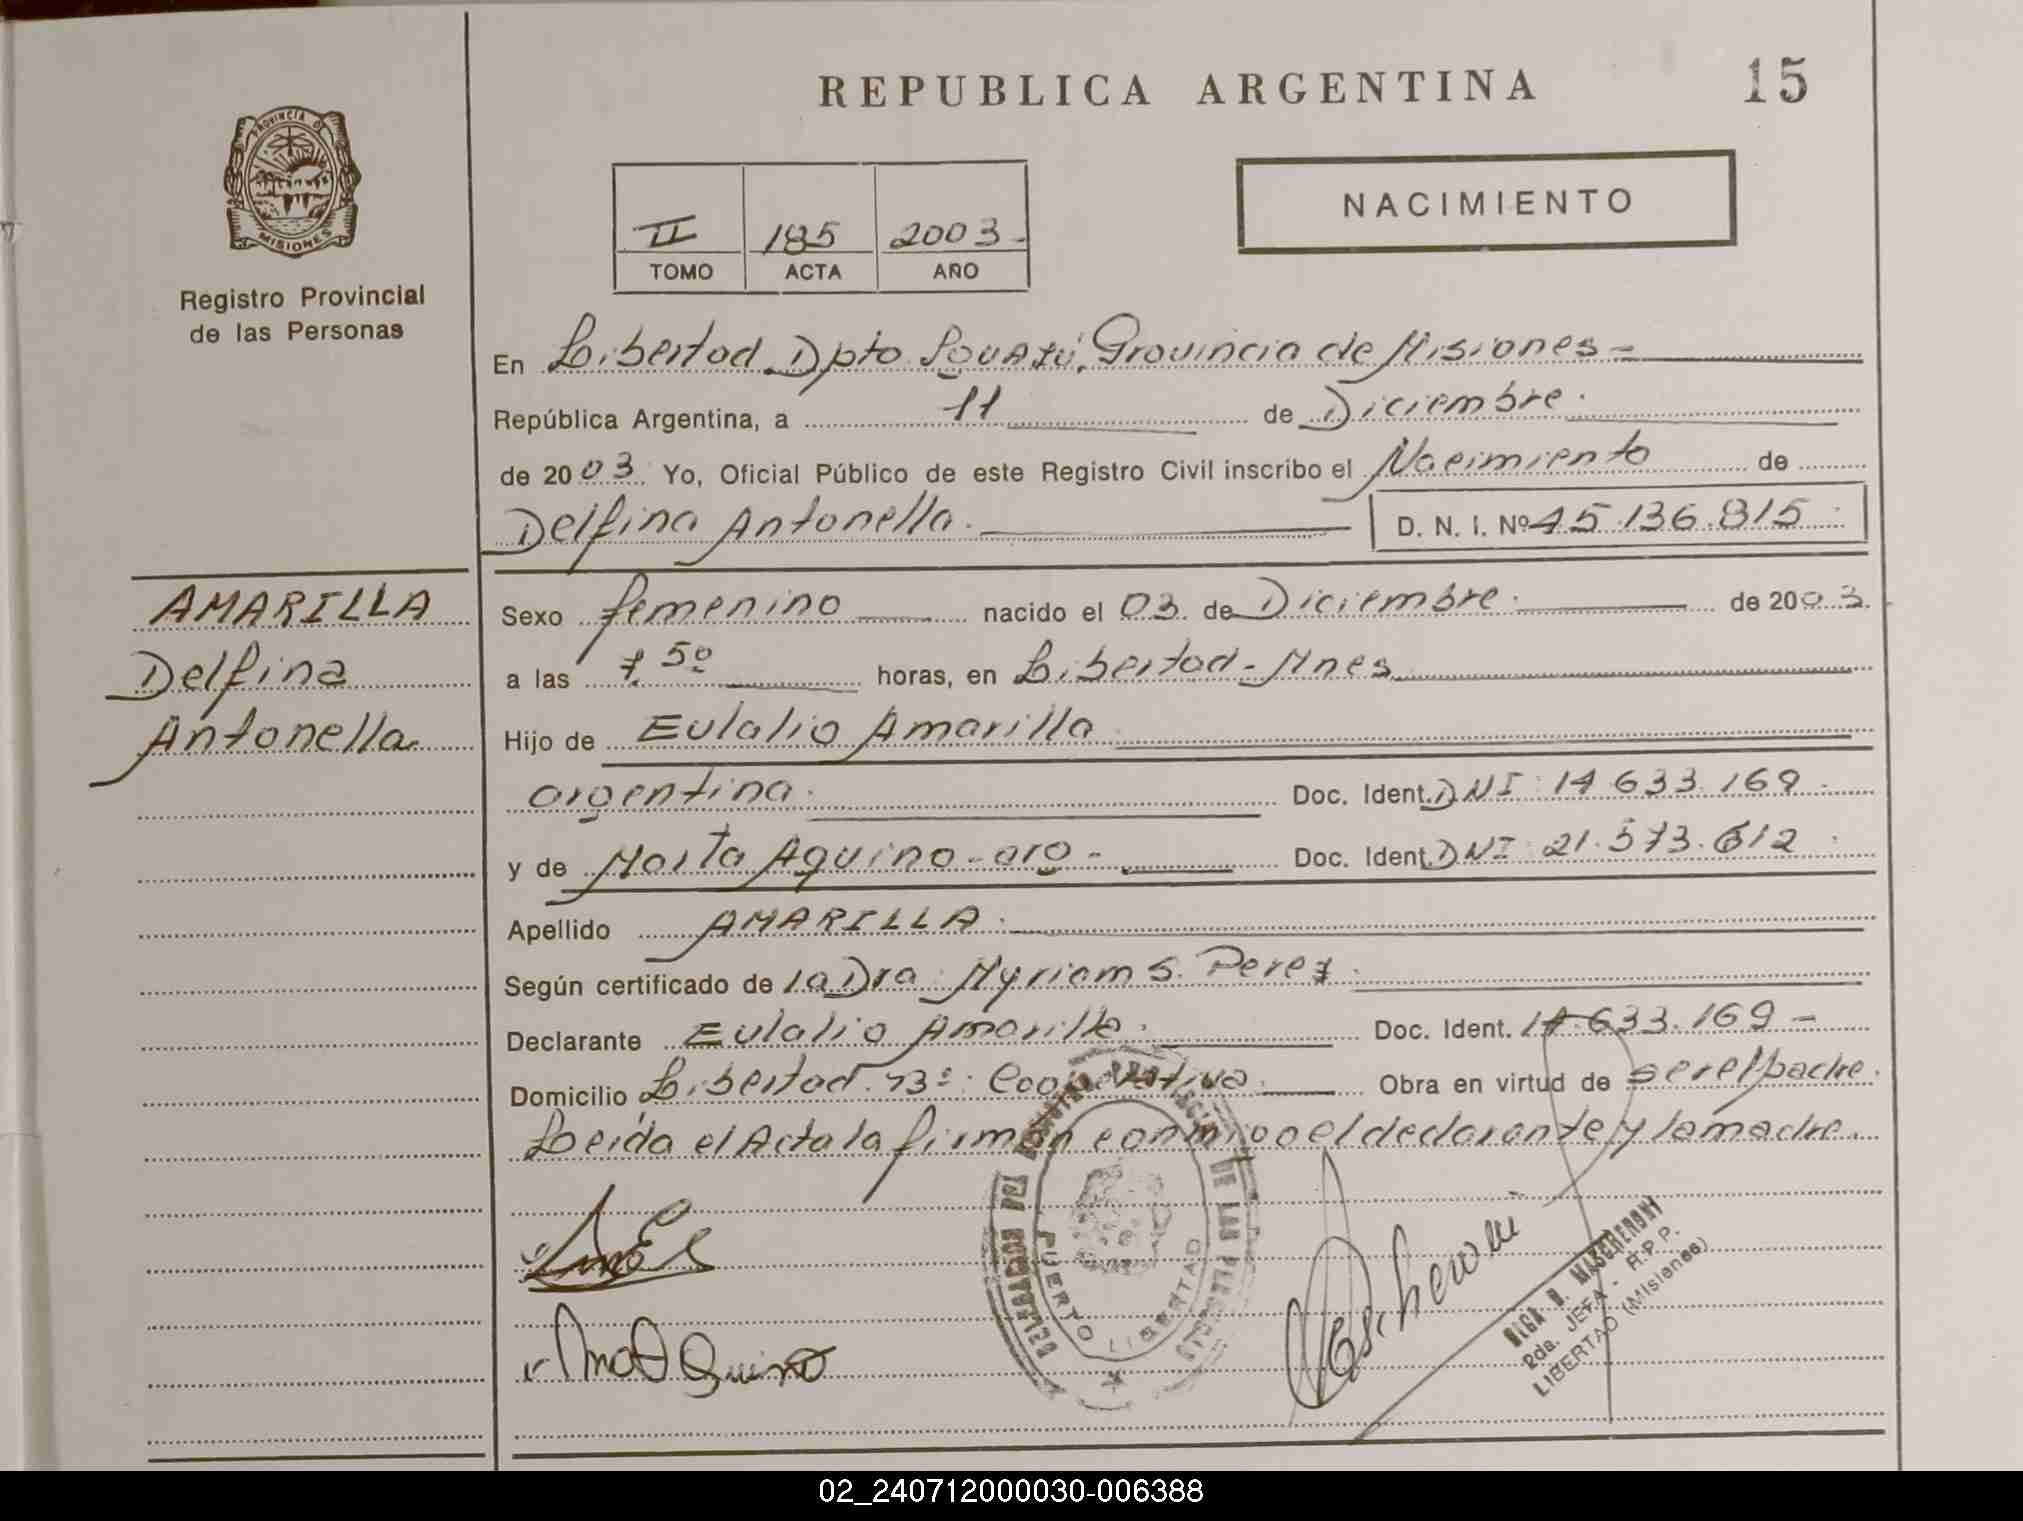 REPUBLICA ARGENTINA
15
PROVINCIA DE
MISIONES
Registro Provincial
de las Personas
II 185 2003
TOMO ACTA AÑO
NACIMIENTO
En Libertad Dpto Iguazú, Provincia de Misiones
República Argentina, a 11 de Diciembre
de 2003 Yo, Oficial Público de este Registro Civil inscribo el Nacimiento de
Delfina Antonella.
D. N. I. Nº 45.136.815
AMARILLA
Delfina
Antonella
Sexo femenino nacido el 03 de Diciembre de 2003
a las 7.50 horas, en Libertad - Mnes
Hijo de Eulalio Amarilla
argentina. Doc. Ident. DNI: 14 633.169
y de Marta Aquino - arg - Doc. Ident. DNI: 21.573.612
Apellido AMARILLA.
Según certificado de la Dra. Myriam S. Perez.
Declarante Eulalio Amarilla. Doc. Ident. 14.633.169 -
Domicilio Libertad. Bº Cooperativa. Obra en virtud de ser el padre.
Leida el Acta la firman conmigo el declarante y la madre.
PUERTO LIBERTAD
DE LAS PERSONAS
MASCHERONI
2da. JEFA - R.P.P.
LIBERTAD (Misiones)
02_240712000030-006388